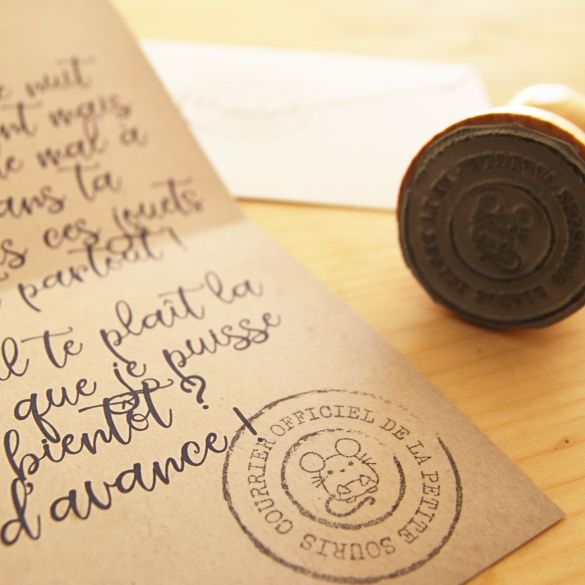 nuit
mais
mal à
ans ta
ces jouets
partout !
te plaît la
que je puisse
bientôt ?
d'avance !
COURRIER OFFICIEL DE LA PETITE SOURIS